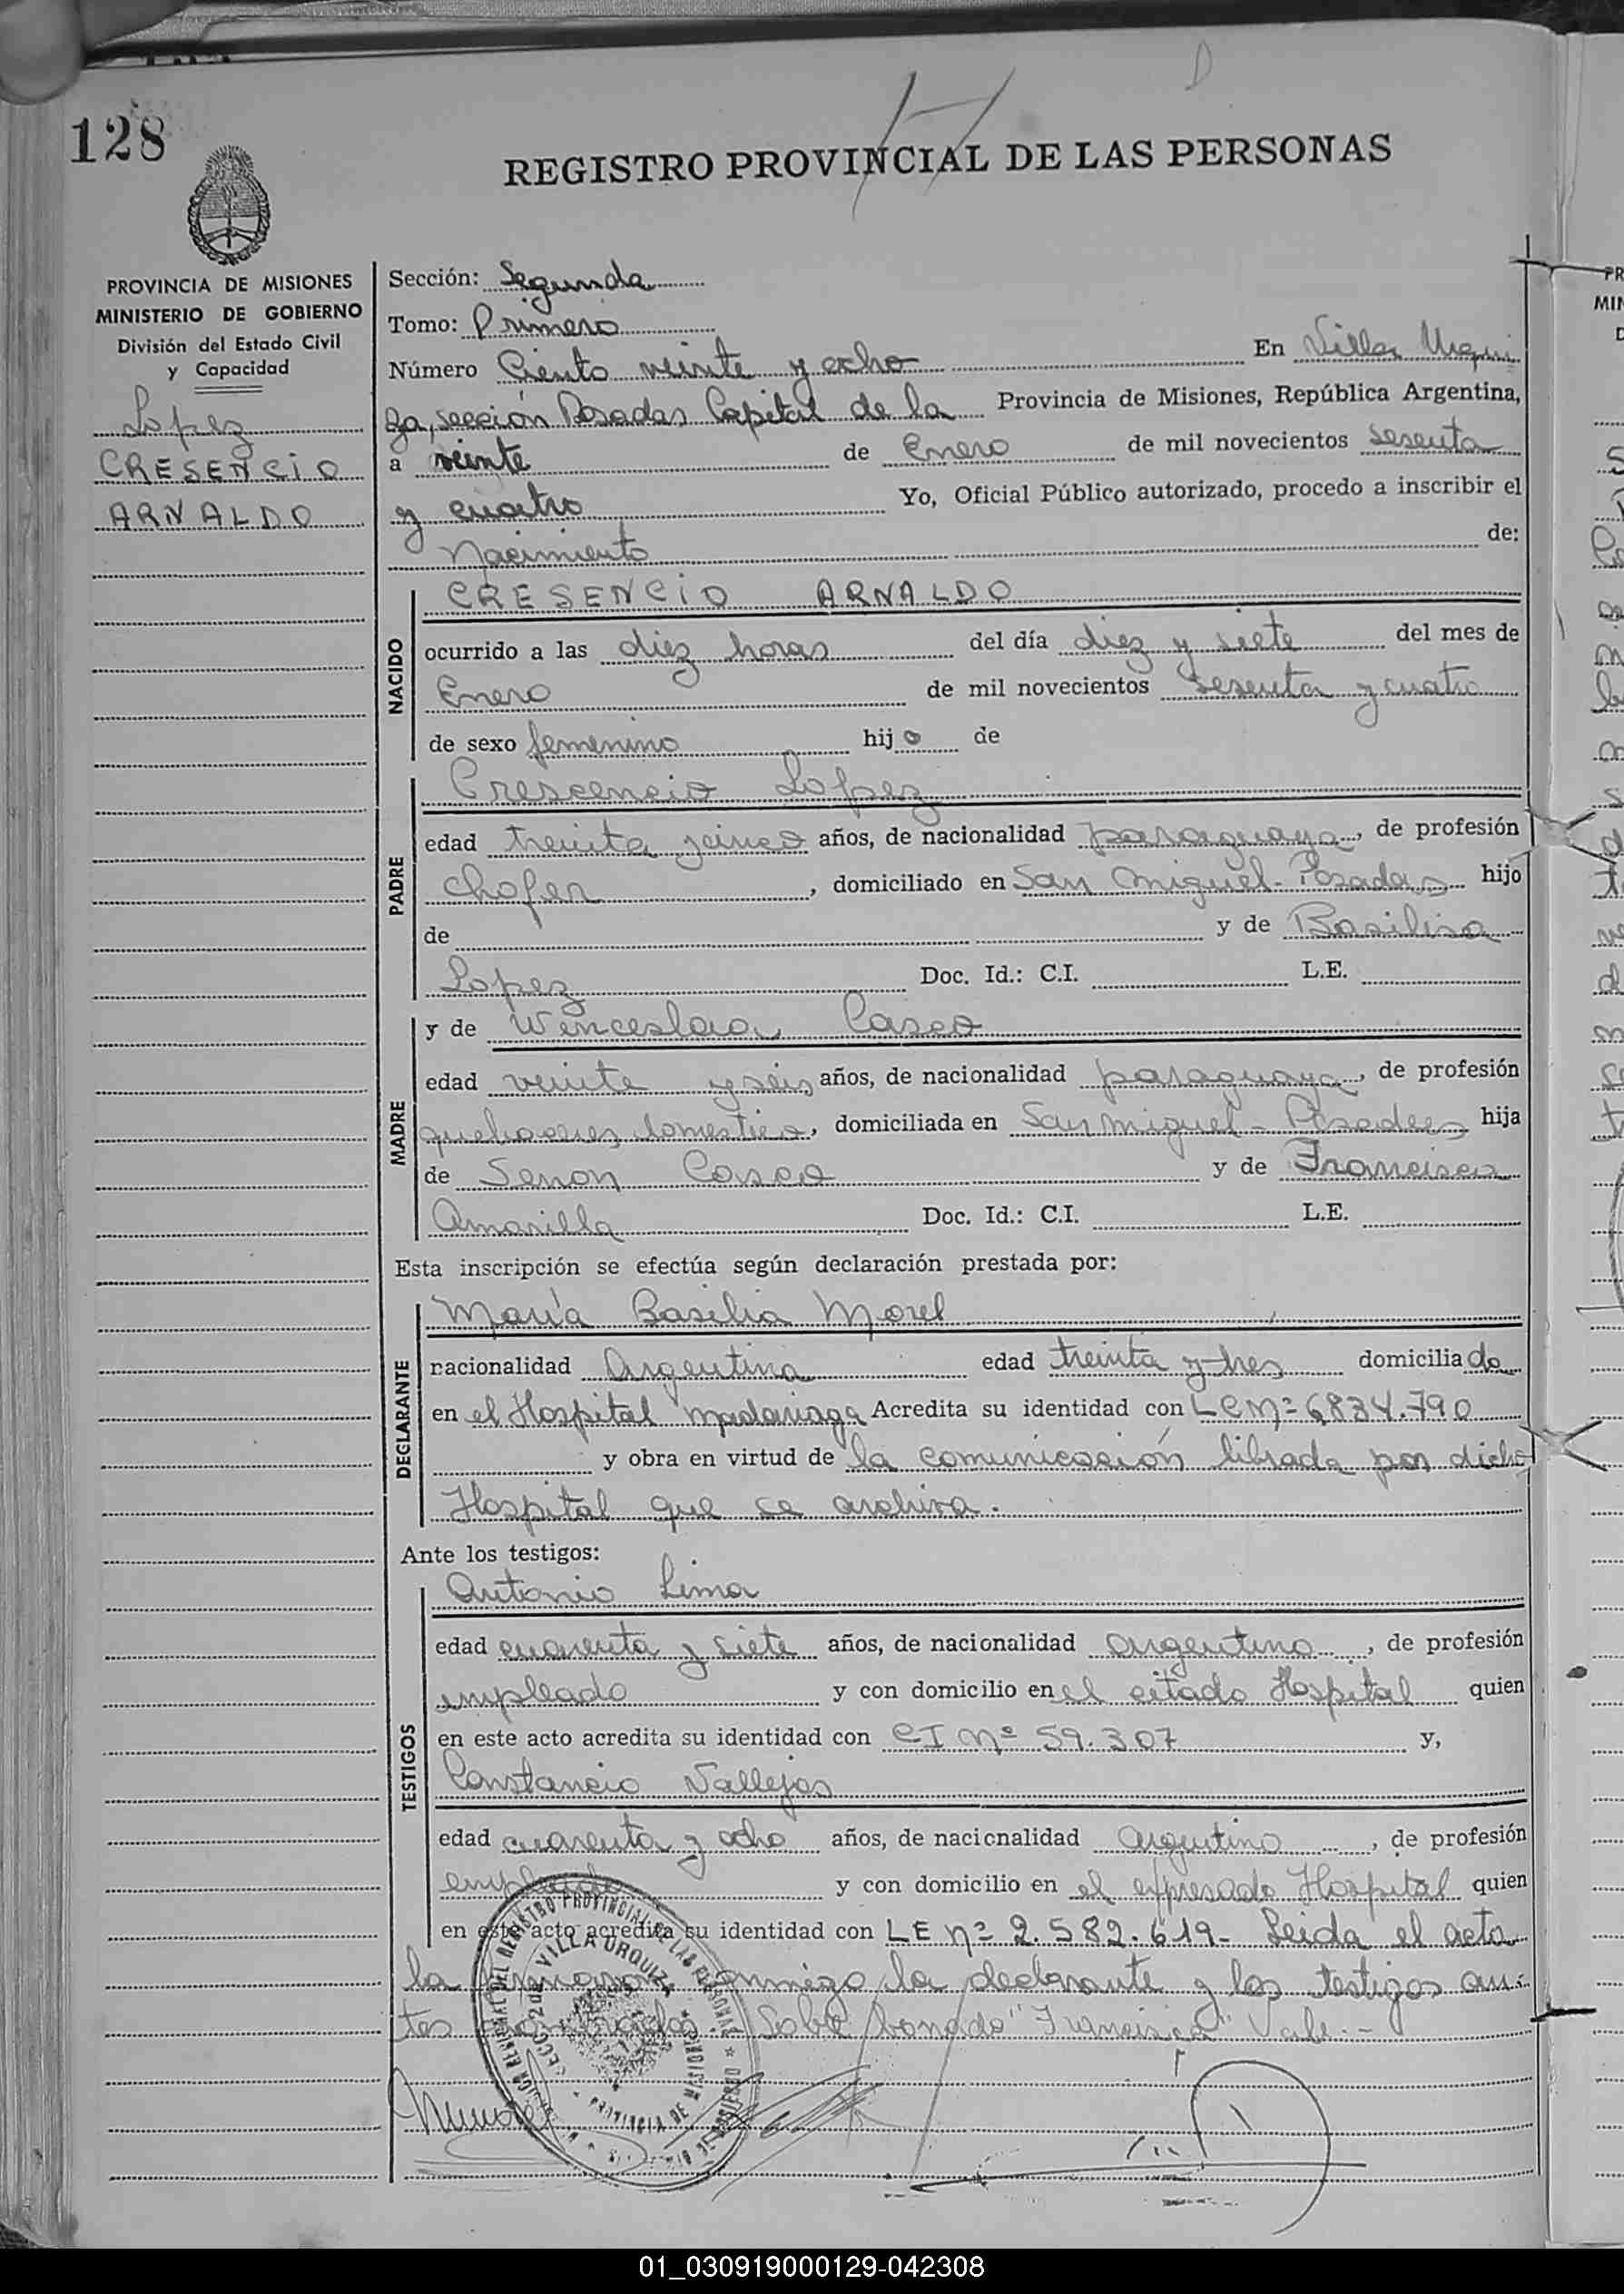 128
REGISTRO PROVINCIAL DE LAS PERSONAS
PROVINCIA DE MISIONES
MINISTERIO DE GOBIERNO
División del Estado Civil
y Capacidad
Lopez
CRESENCIO
ARNALDO
Sección: Segunda
Tomo: Primero
Número Ciento veinte y ocho En Villa Urqui
za, sección Posadas Capital de la Provincia de Misiones, República Argentina,
a veinte de Enero de mil novecientos sesenta
y cuatro Yo, Oficial Público autorizado, procedo a inscribir el
Nacimiento de:
NACIDO
CRESENCIO ARNALDO
ocurrido a las diez horas del día diez y siete del mes de
Enero de mil novecientos sesenta y cuatro
de sexo femenino hijo de
PADRE
Crescencio Lopez
edad treinta y cinco años, de nacionalidad paraguaya, de profesión
chofer, domiciliado en San Miguel - Posadas hijo
de y de Basilisa
Lopez Doc. Id.: C.I. L.E.
MADRE
y de Wenceslaa Casco
edad veinte y seis años, de nacionalidad paraguaya, de profesión
quehaceres domestico, domiciliada en San Miguel - Posadas hija
de Senon Casco y de Francisca
Amarilla Doc. Id.: C.I. L.E.
Esta inscripción se efectúa según declaración prestada por:
DECLARANTE
María Basilia Morel
nacionalidad Argentina edad treinta y tres domiciliado
en el Hospital Madariaga Acredita su identidad con LC Nº 6834.790
y obra en virtud de la comunicación librada por dicho
Hospital que se archiva.
Ante los testigos:
TESTIGOS
Antonio Lima
edad cuarenta y siete años, de nacionalidad argentino, de profesión
empleado y con domicilio en el citado Hospital quien
en este acto acredita su identidad con CI Nº 59.307 y,
Constancio Vallejos
edad cuarenta y ocho años, de nacionalidad argentino, de profesión
empleado y con domicilio en el expresado Hospital quien
en este acto acredita su identidad con LE Nº 2.582.619- Leida el acta
la conmigo la declarante y los testigos an
tes Sobre "Francisca" Vale.-
VILLA URQUIZA
01_030919000129-042308